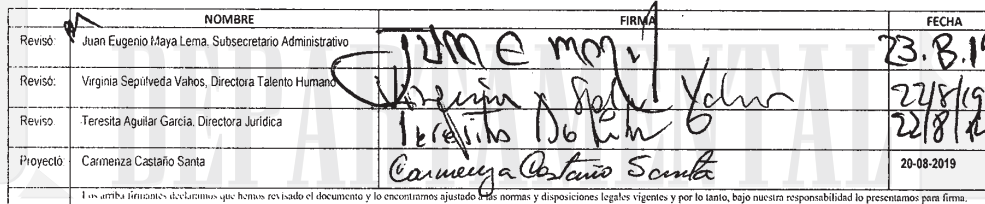 NOMBRE FIRMA FECHA
Revisó: Juan Eugenio Maya Lema. Subsecretario Administrativo 23.8.19
Revisó: Virginia Sepúlveda Vahos, Directora Talento Humano Virginia Sepúlveda Vahos 22/8/19
Reviso. Teresita Aguilar García. Directora Jurídica Teresita 22/8/19
Proyectó: Carmenza Castaño Santa Carmenza Castaño Santa 20-08-2019
Los arriba firmantes declaramos que hemos revisado el documento y lo encontramos ajustado a las normas y disposiciones legales vigentes y por lo tanto, bajo nuestra responsabilidad lo presentamos para firma.
DEPARTAMENTAL